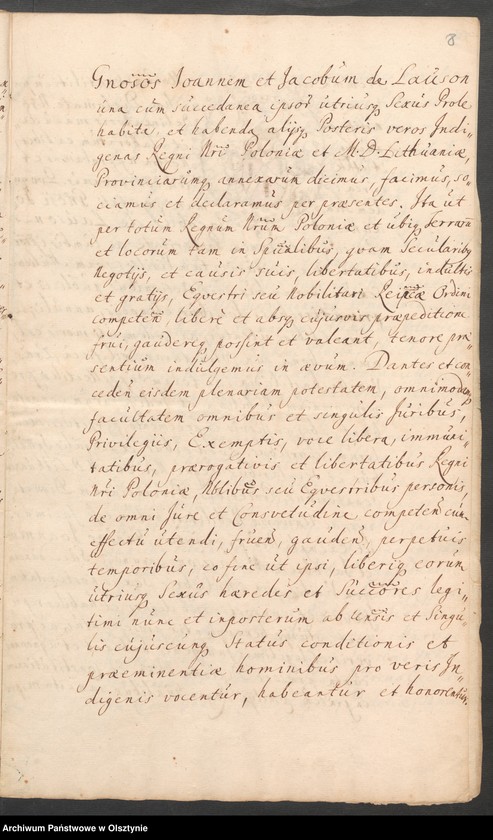 8
Gnosos Joannem et Jacobum de Lauson
una cum succedanea ipsor utriusq Sexus Prole
habita, et habenda alijsq Posteris veros Indi„
genas Regni Nri Poloniæ et M. D. Lithuaniæ,
Provinciarumq annexarum dicimus, facimus, so„
ciamus et declaramus per præsentes. Ita ut
per totum Regnum Nrum Poloniæ et ubiq Terrarum
et locorum tam in Spūalibus, quam Secularibq
Negotijs, et causis suis, libertatibus, indultis
et gratijs, Equestri seu Nobilitari Reipcæ Ordini
competen, liberè et absq cujusvis præpeditione
frui, gaudereq possint et valeant, tenore præ„
sentium indulgemus in ævum. Dantes et con„
ceden eisdem plenariam potestatem, omnimodamq
facultatem omnibus et singulis Juribus,
Privilegiis, Exemptis, voce libera, immuni„
tatibus, prærogativis et libertatibus Regni
Nri Poloniæ, Nblibus seu Equestribus personis,
de omni Jure et Consvetudine competen cum
effectu utendi, fruen, gauden, perpetuis
temporibus, eo fine ut ipsi, liberiq eorum
utriusq Sexus hæredes et Succores legi„
timi nunc et inposterum ab Uensis et Singu„
lis cujuscunq Status conditionis et
præeminentiæ hominibus pro veris In„
digenis vocentur, habeantur et honorentur.
Archiwum Państwowe w Olsztynie